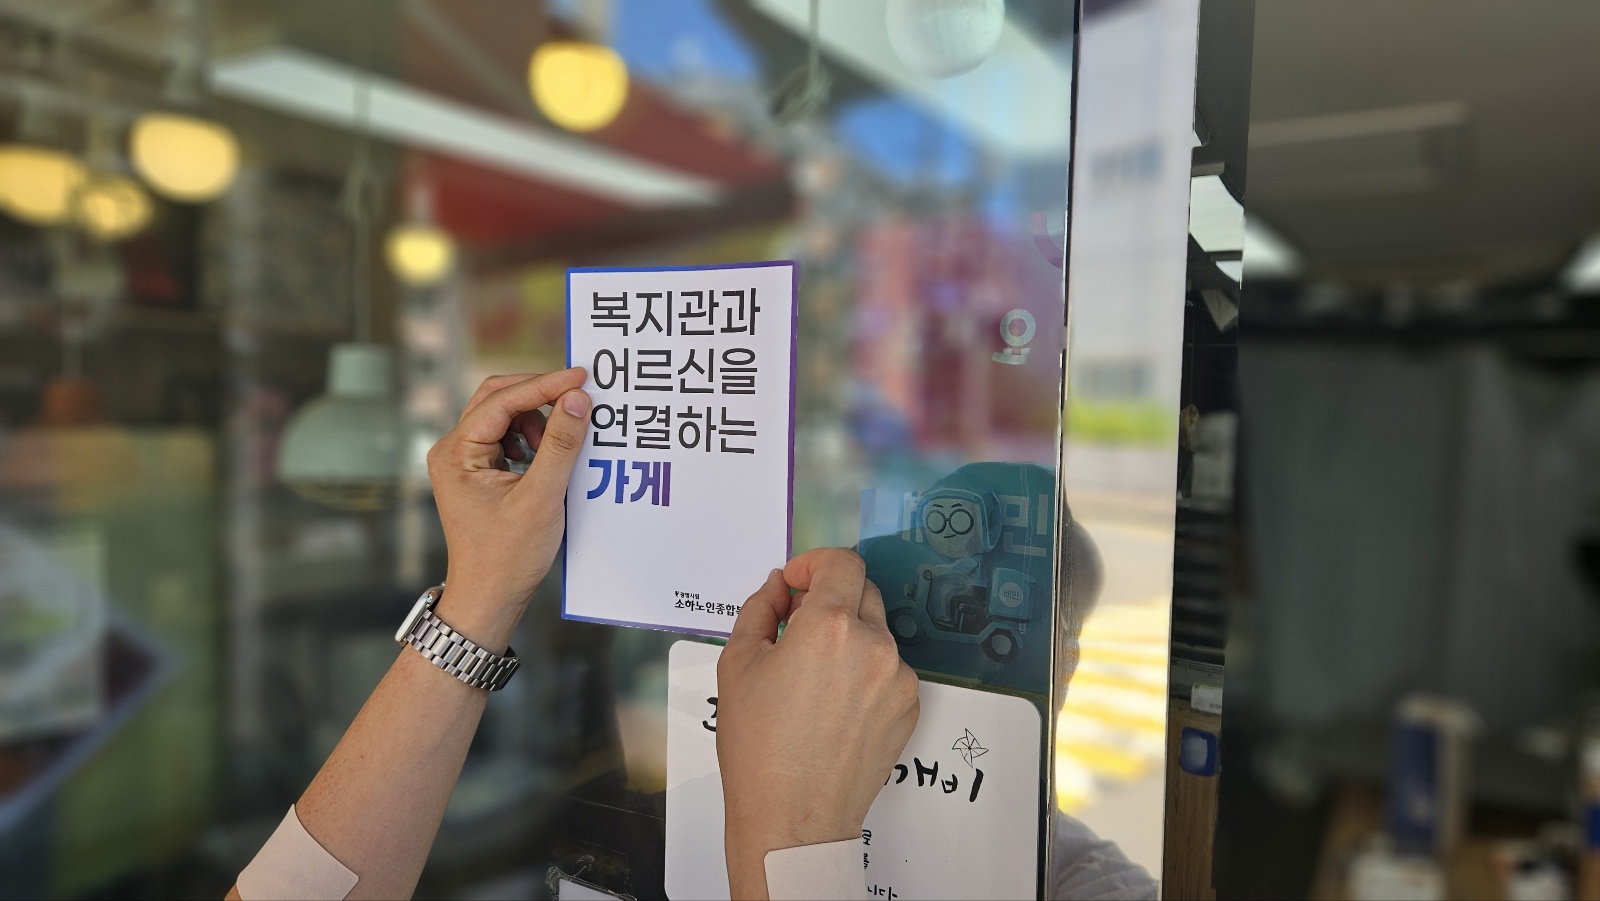 복지관과
어르신을
연결하는
가게
광명시립
소하노인종합복
요
민
배민
개비
니다